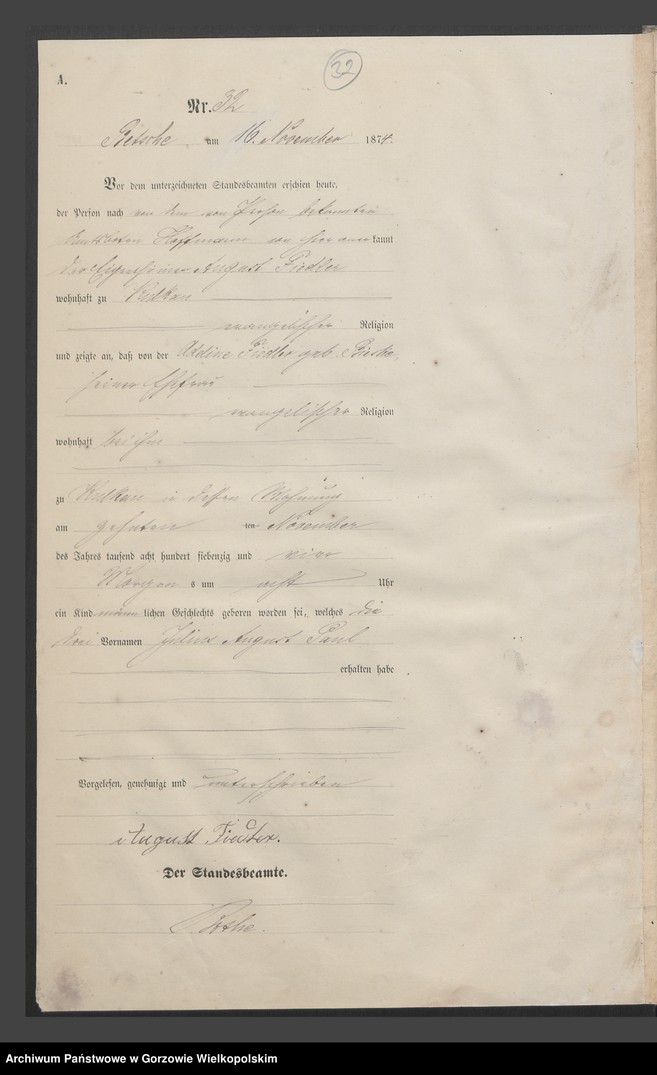 32
A.
Nr. 32
Betsche, am 16. November 1874.
Vor dem unterzeichneten Standesbeamten erschien heute,
der Person nach von dem von Person bekannten
Amtsboten Hoffmann kannt
der Eigenthümer August Fiedler
wohnhaft zu Kulkau
evangelischer Religion
und zeigte an, daß von der Fiedler geb.
seiner Ehefrau
evangelischer Religion
wohnhaft bei ihm
zu Kulkau in dessen Wohnung
am zehnten ten November
des Jahres tausend acht hundert siebenzig und vier
Morgens um acht Uhr
ein Kind männlichen Geschlechts geboren worden sei, welches die
drei Vornamen Julius August Paul
erhalten habe
Vorgelesen, genehmigt und unterschrieben
August Fiedler.
Der Standesbeamte.
Archiwum Państwowe w Gorzowie Wielkopolskim